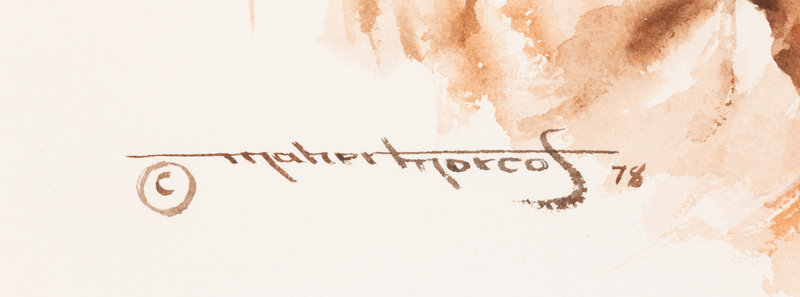 © Maher Morcos 78